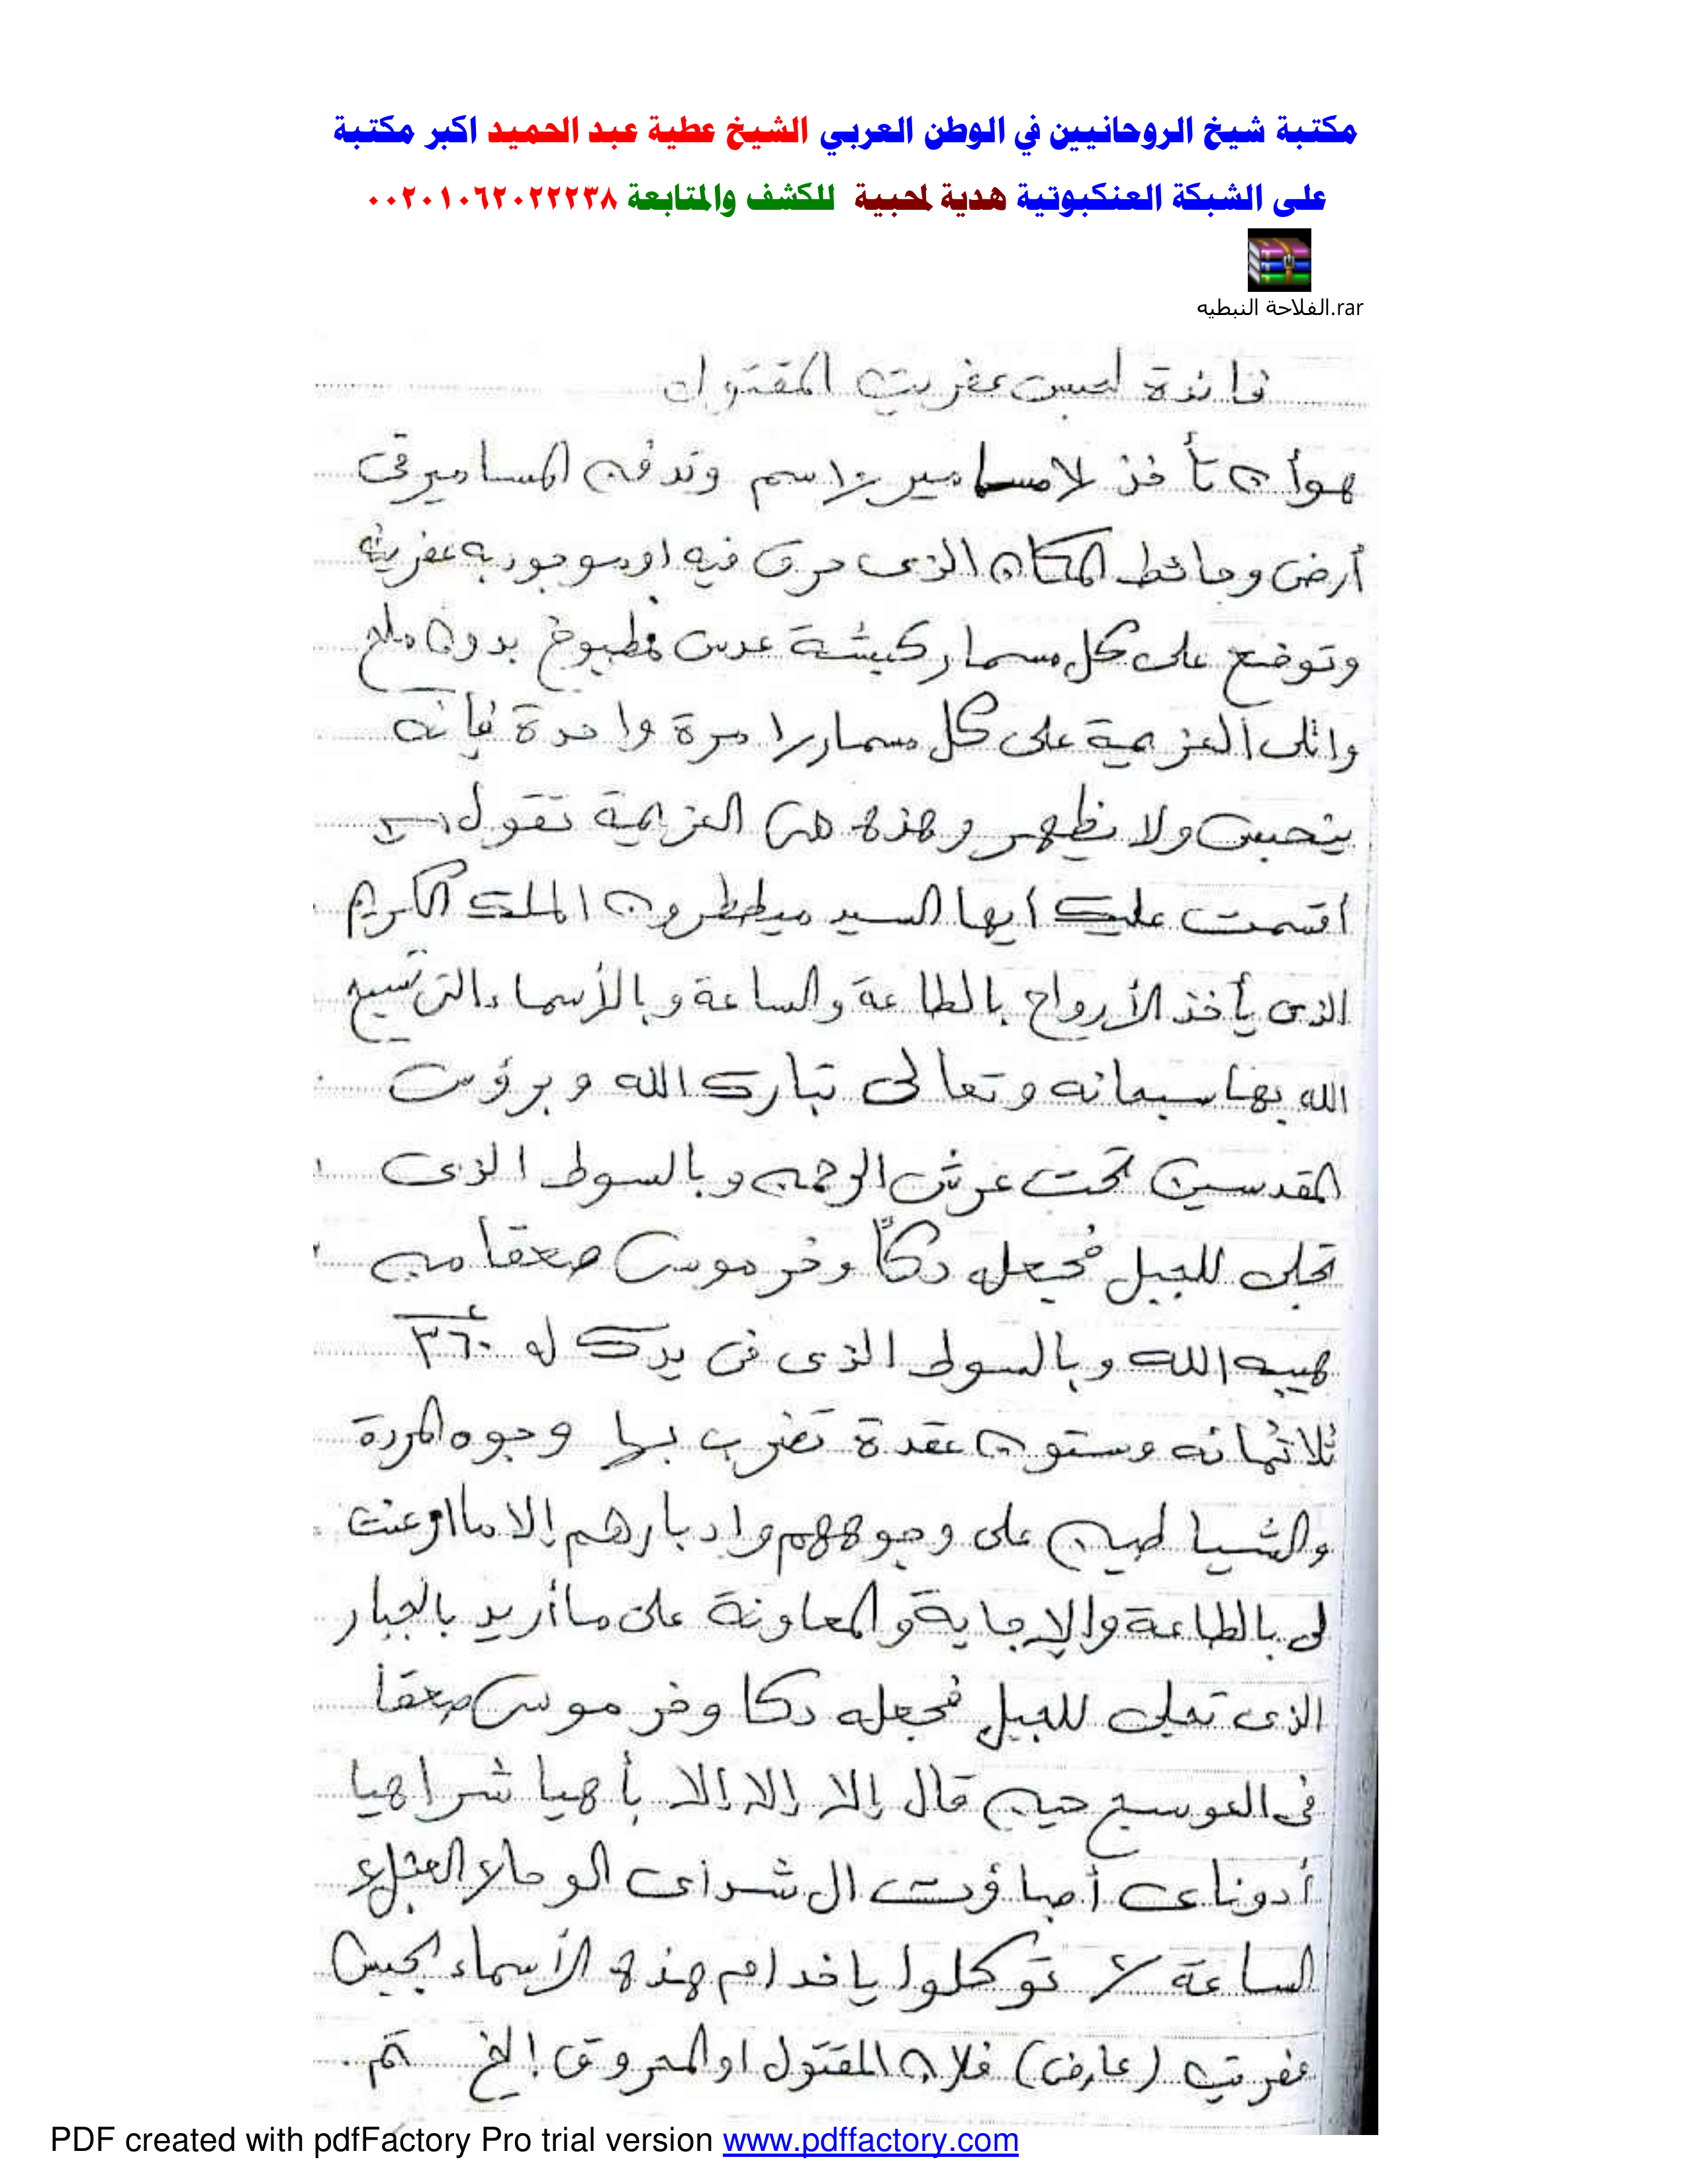 مكتبة شيخ الروحانيين في الوطن العربي الشيخ عطية عبد الحميد اكبر مكتبة
على الشبكة العنكبوتية هدية لمحبية للكشف والمتابعة ٠٠٢٠١٠٦٢٠٢٢٢٣٨
الفلاحة النبطيه.rar
فائدة لحبس عفريت المقتول
هو أن تأخذ مسامير وتدفن المسامير فى
أرض وحائط المكان الذى حرق فيه او موجود به عفريته
وتوضع على كل مسمار كبشة عدس مطبوخ بدون ملح
واتلى العزيمة على كل مسمار مرة واحدة فإنه
ينحبس ولا يظهر وهذه هى العزيمة تقول
أقسمت عليك أيها السيد ميططرون الملك الكريم
الذى يأخذ الأرواح بالطاعة والساعة وبالأسماء التى تسبح
الله بها سبحانه وتعالى تبارك الله وبرؤس
المقدسين تحت عرش الرحمن وبالسوط الذى
تجلى للجبل فجعله دكاً وخر موسى صعقا من
هيبه الله وبالسوط الذى فى يدك له ٣٦٠
ثلاثمائه وستون عقدة تضرب بها وجوه المردة
والشياطين على وجوههم وادبارهم إلا ما
لى بالطاعة والإجابة والمعاونة على ما أريد بالجبار
الذى تجلى للجبل فجعله دكا وخر موسى صعقا
فى العوسج حين قال إلا إلا إلا بأهيا شراهيا
أدوناى أصباؤت ال شداى الوحا العجل
الساعة توكلوا ياخدام هذه الأسماء بحبس
عفريت (عارض) فلان المقتول او المحروق إلخ تم.
PDF created with pdfFactory Pro trial version www.pdffactory.com